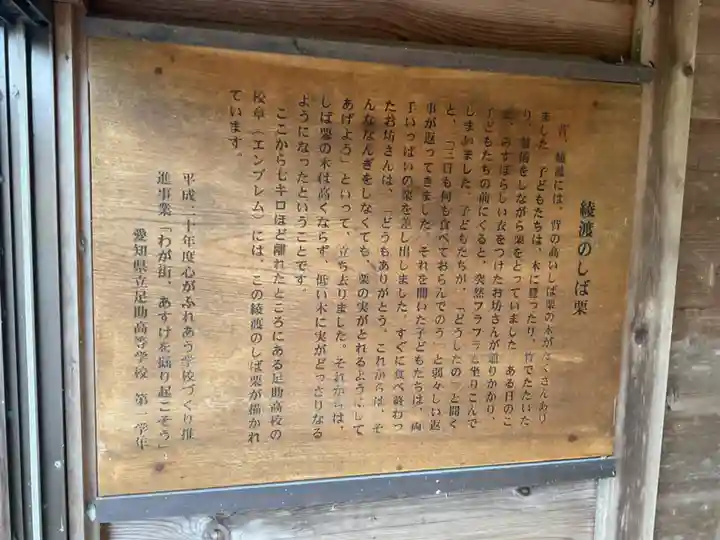 綾渡のしば栗
昔、綾渡には、背の高いしば栗の木がたくさんあり
ました。子どもたちは、木に登ったり、竹でたたいた
り、
をしながら栗をとっていました。ある日のこ
と、みすぼらしい衣をつけたお坊さんが通りかかり、
子どもたちの前にくると、突然フラフラと坐りこんで
しまいました。子どもたちが、「どうしたの」と聞く
と、「三日も何も食べておらんでのう」と弱々しい返
事が返ってきました。それを聞いた子どもたちは、両
手いっぱいの栗を差し出しました。すぐに食べ終わっ
たお坊さんは、「どうもありがとう。これからは、そ
んななんぎをしなくても、栗の実がとれるようにして
あげよう」といって、立ち去りました。それからは、
しば栗の木は高くならず、低い木に実がどっさりなる
ようになったということです。
ここから七キロほど離れたところにある足助高校の
校章(エンブレム)には、この綾渡のしば栗が描かれ
ています。
平成二十年度心がふれあう学校づくり推
進事業「わが街、あすけを掘り起こそう」
愛知県立足助高等学校 第一学年